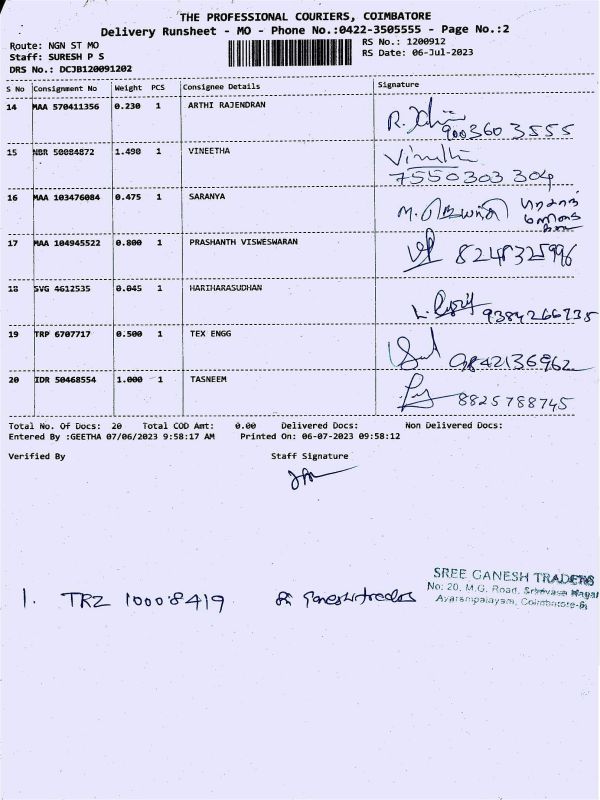 THE PROFESSIONAL COURIERS, COIMBATORE
Delivery Runsheet - MO - Phone No.:0422-3505555 - Page No.:2
Route: NGN ST MO
RS No.: 1200912
Staff: SURESH P S
RS Date: 06-Jul-2023
DRS No.: DCJB120091202
S No Consignment No Weight PCS Consignee Details Signature
14 MAA 570411356 0.230 1 ARTHI RAJENDRAN
900360 3555
15 NBR 50084872 1.490 1 VINEETHA
7550303 304
16 MAA 103476084 0.475 1 SARANYA
17 MAA 104945522 0.800 1 PRASHANTH VISWESWARAN
8248325996
18 SVG 4612535 0.045 1 HARIHARASUDHAN
9384266735
19 TRP 6707717 0.500 1 TEX ENGG
9842136962
20 IDR 50468554 1.000 1 TASNEEM
8825788745
Total No. Of Docs: 20 Total COD Amt: 0.00 Delivered Docs: Non Delivered Docs:
Entered By :GEETHA 07/06/2023 9:58:17 AM Printed On: 06-07-2023 09:58:12
Verified By Staff Signature
SREE GANESH TRADERS
No: 20, M.G. Road, Srinivasa Nagar
Avarampalayam, Coimbatore-6
1. TRZ 10008419 Sri Ganesh traders